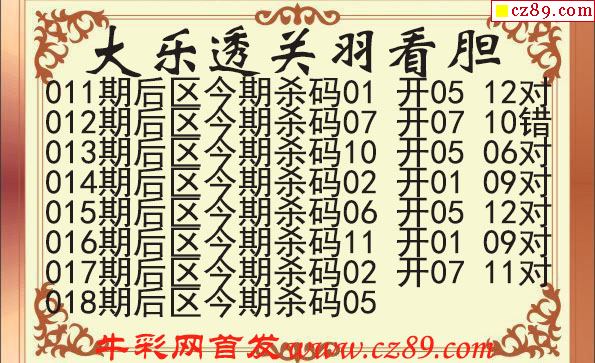 cz89.com
大乐透关羽看胆
011期后区今期杀码01 开05 12对
012期后区今期杀码07 开07 10错
013期后区今期杀码10 开05 06对
014期后区今期杀码02 开01 09对
015期后区今期杀码06 开05 12对
016期后区今期杀码11 开01 09对
017期后区今期杀码02 开07 11对
018期后区今期杀码05
牛彩网首发www.cz89.com